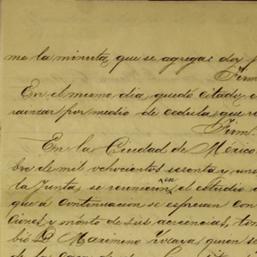 me la minuta, que se agrega: doy f
Firm
En el mismo dia quedó citado e
por medio de cedula, que re
Firm.
En la Ciudad de México
bre de mil ochocientos sesenta y uno
la Junta, se reunieron, en el estudio
que á continuacion se espresan con
ciones, y monto de sus acciencias, ton
bio D. Macsimino quien se